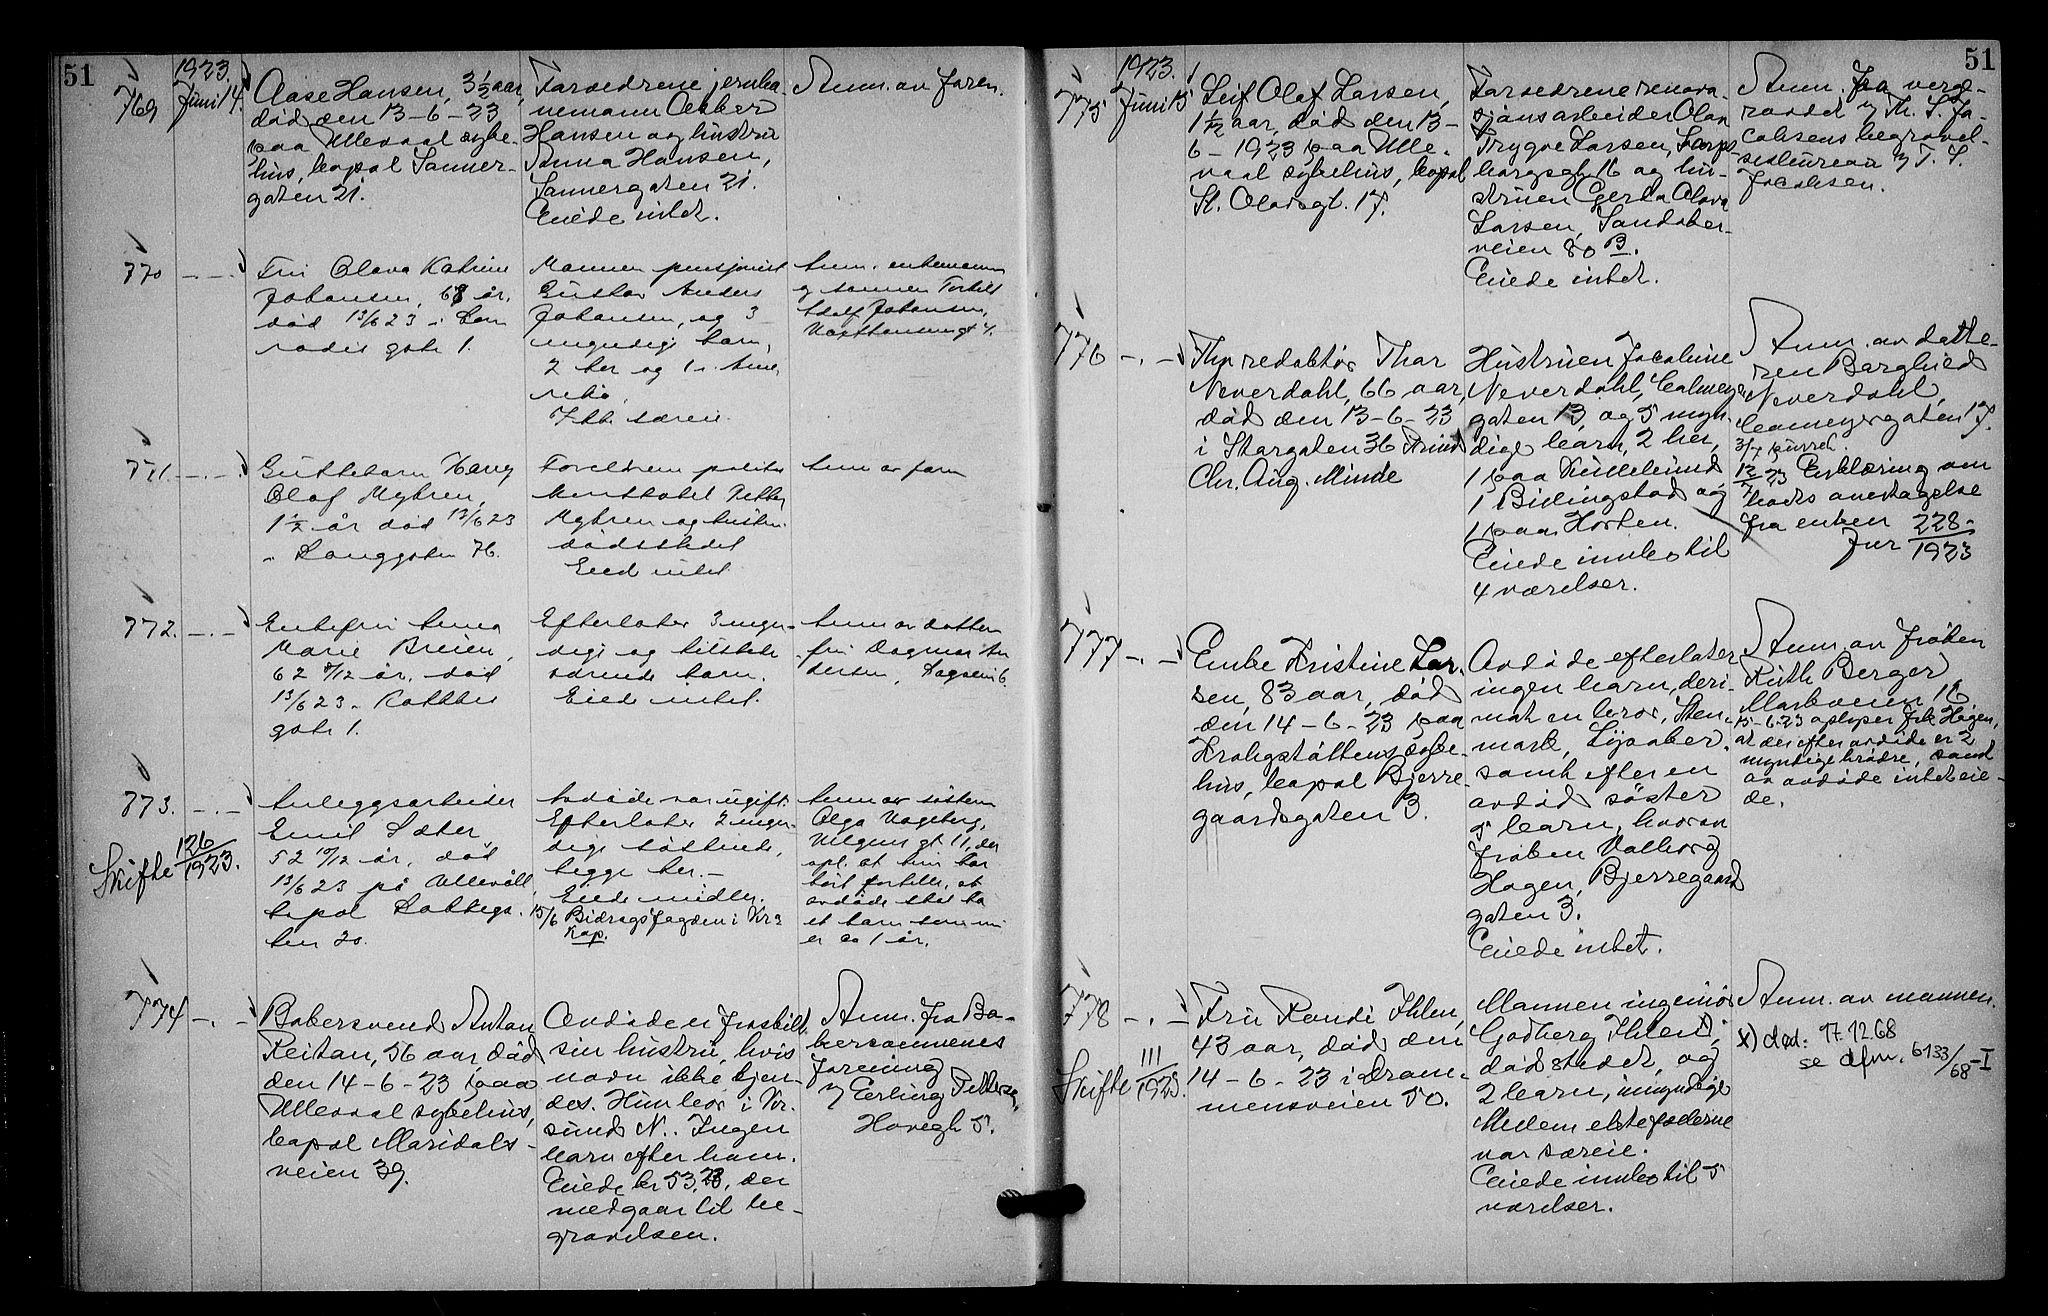 51
1923.
769
Juni 14.
Aase Hansen, 3 1/2 aar,
død den 13-6-23
paa Ullevaal syke-
hus, bopæl Sanner-
gaten 21.
Forældrene jernba-
nemann
Hansen og hustru
Anna Hansen,
Sannergaten 21.
Eiede intet.
Anm. av faren.
770 -.-
Fru Olava Katrine
Johansen, 68 år,
død 13/6 23 i
gate 1.
Mannen pensjonist
Gustav Anders
Johansen, og 3
myndige barn,
2 her og 1 i Ame-
rika.
Ikke særeie
Anm. enkemannen
og sønnen Torleif
Adolf Johansen,
771. -.-
Guttebarn Harry
Olaf Myhren,
1 1/2 år død 12/6 23
i Langgaten 76.
Foreldrene politi-
Myhren og hustru
dødsstedet
Eied intet
Anm av faren
772. -.-
Enkefru Anna
Marie Breien,
62 år, død
13/6 23
gate 1.
Efterlater 3 myn-
dige og tilstede-
værende barn.
Eiede intet.
Anm av datteren
fru Dagmar An-
dersen,
773. -.-
Skifte 126/1923.
Anleggsarbeider
Emil Sæter
52 10/12 år, død
13/6 23 på Ullevåll,
bopæl
ten 20.
Avdøde var ugift.
Efterlater 2 myn-
dige søstrene,
begge her. -
Eiede midler.
15/6 Bidragsfogden i Kr.a
Kap.
Anm av søsteren
Olga
gt. 11, der
opl. at hun har
hørt fortelle, at
avdøde skal ha
et barn som nu
er ca 1 år.
774 -.-
Bakersvend Anton
Reitan, 56 aar, død
den 14-6-23 paa
Ullevaal sykehus,
bopæl Maridals-
veien 39.
Avdøde er fraskilt
sin hustru, hvis
navn ikke kjen-
des. Hun bor i Kr.
sund N.. Ingen
barn efter ham.
Eiede kr 53,23, der
medgaar til be-
gravelsen.
Anm. fra Ba-
kersvennenes
forening
v/ Erling Petters,
51
1923.
775 Juni 15
Leif Olaf Larsen,
1 1/12 aar, død den 13-
6-1923 paa Ulle-
vaal sykehus, bopæl
St. Olavsgt. 17.
Forældrene renova-
sjonsarbeider Olav
Trygve Larsen, Sarps-
borggt. 16 og hu-
struen Gerda Olava
Larsen, Sandaker-
veien 80 B.
Eiede intet.
Anm. fra verge-
raadet v/ Th. S. Ja-
cobsens begravel-
sesbureau v/ T. S.
Jacobsen.
776 -.-
Fhv redaktør Thor
Neverdahl, 66 aar,
død den 13-6-23
i Storgaten 36
Chr. Aug. Minde
Hustruen Jacobine
Neverdahl, Calmeyer
gaten 13, og 5 myn-
dige barn, 2 her,
1 paa
1 Billingstad og
1 paa Horten.
Eiede innbo til
4 værelser.
Anm. av datte-
ren Borghild
Neverdahl,
Calmeyergaten 17.
3/7 purret.
12/7 23 Erklæring om
bods overtagelse
fra enken 228-
Jnr 1923
777 -.-
Enke Kristine Lar-
sen, 83 aar, død
den 14-6-23 paa
Krohgstøttens syke-
hus, bopæl Bjerre-
gaardsgaten 3.
Avdøde efterlater
ingen barn, deri-
mot en bror, Sten-
mark, Lysaker.
samt efter en
avdød søster
5 barn, hvorav
frøken Valborg
Hagen, Bjerregaard
gaten 3.
Eiede intet.
Anm. av frøken
Ruth Berger
Markveien 16
15-6-23 oplyser frk Hagen,
at der efter avdøde er 2
myndige brødre, samt
av avdøde intet eie-
de.
778 -.-
Skifte 111/1923.
Fru Randi Ihlen,
43 aar, død den
14-6-23 i Dram-
mensveien 50.
Mannen ingeniør
Godberg Ihlen x),
dødstedet, og
2 barn, umyndige
Mellem ektefællerne
var særeie.
Eiede innbo til 5
værelser.
Anm. av mannen.
x) død: 17.12.68
se dfm. 6133/68-I